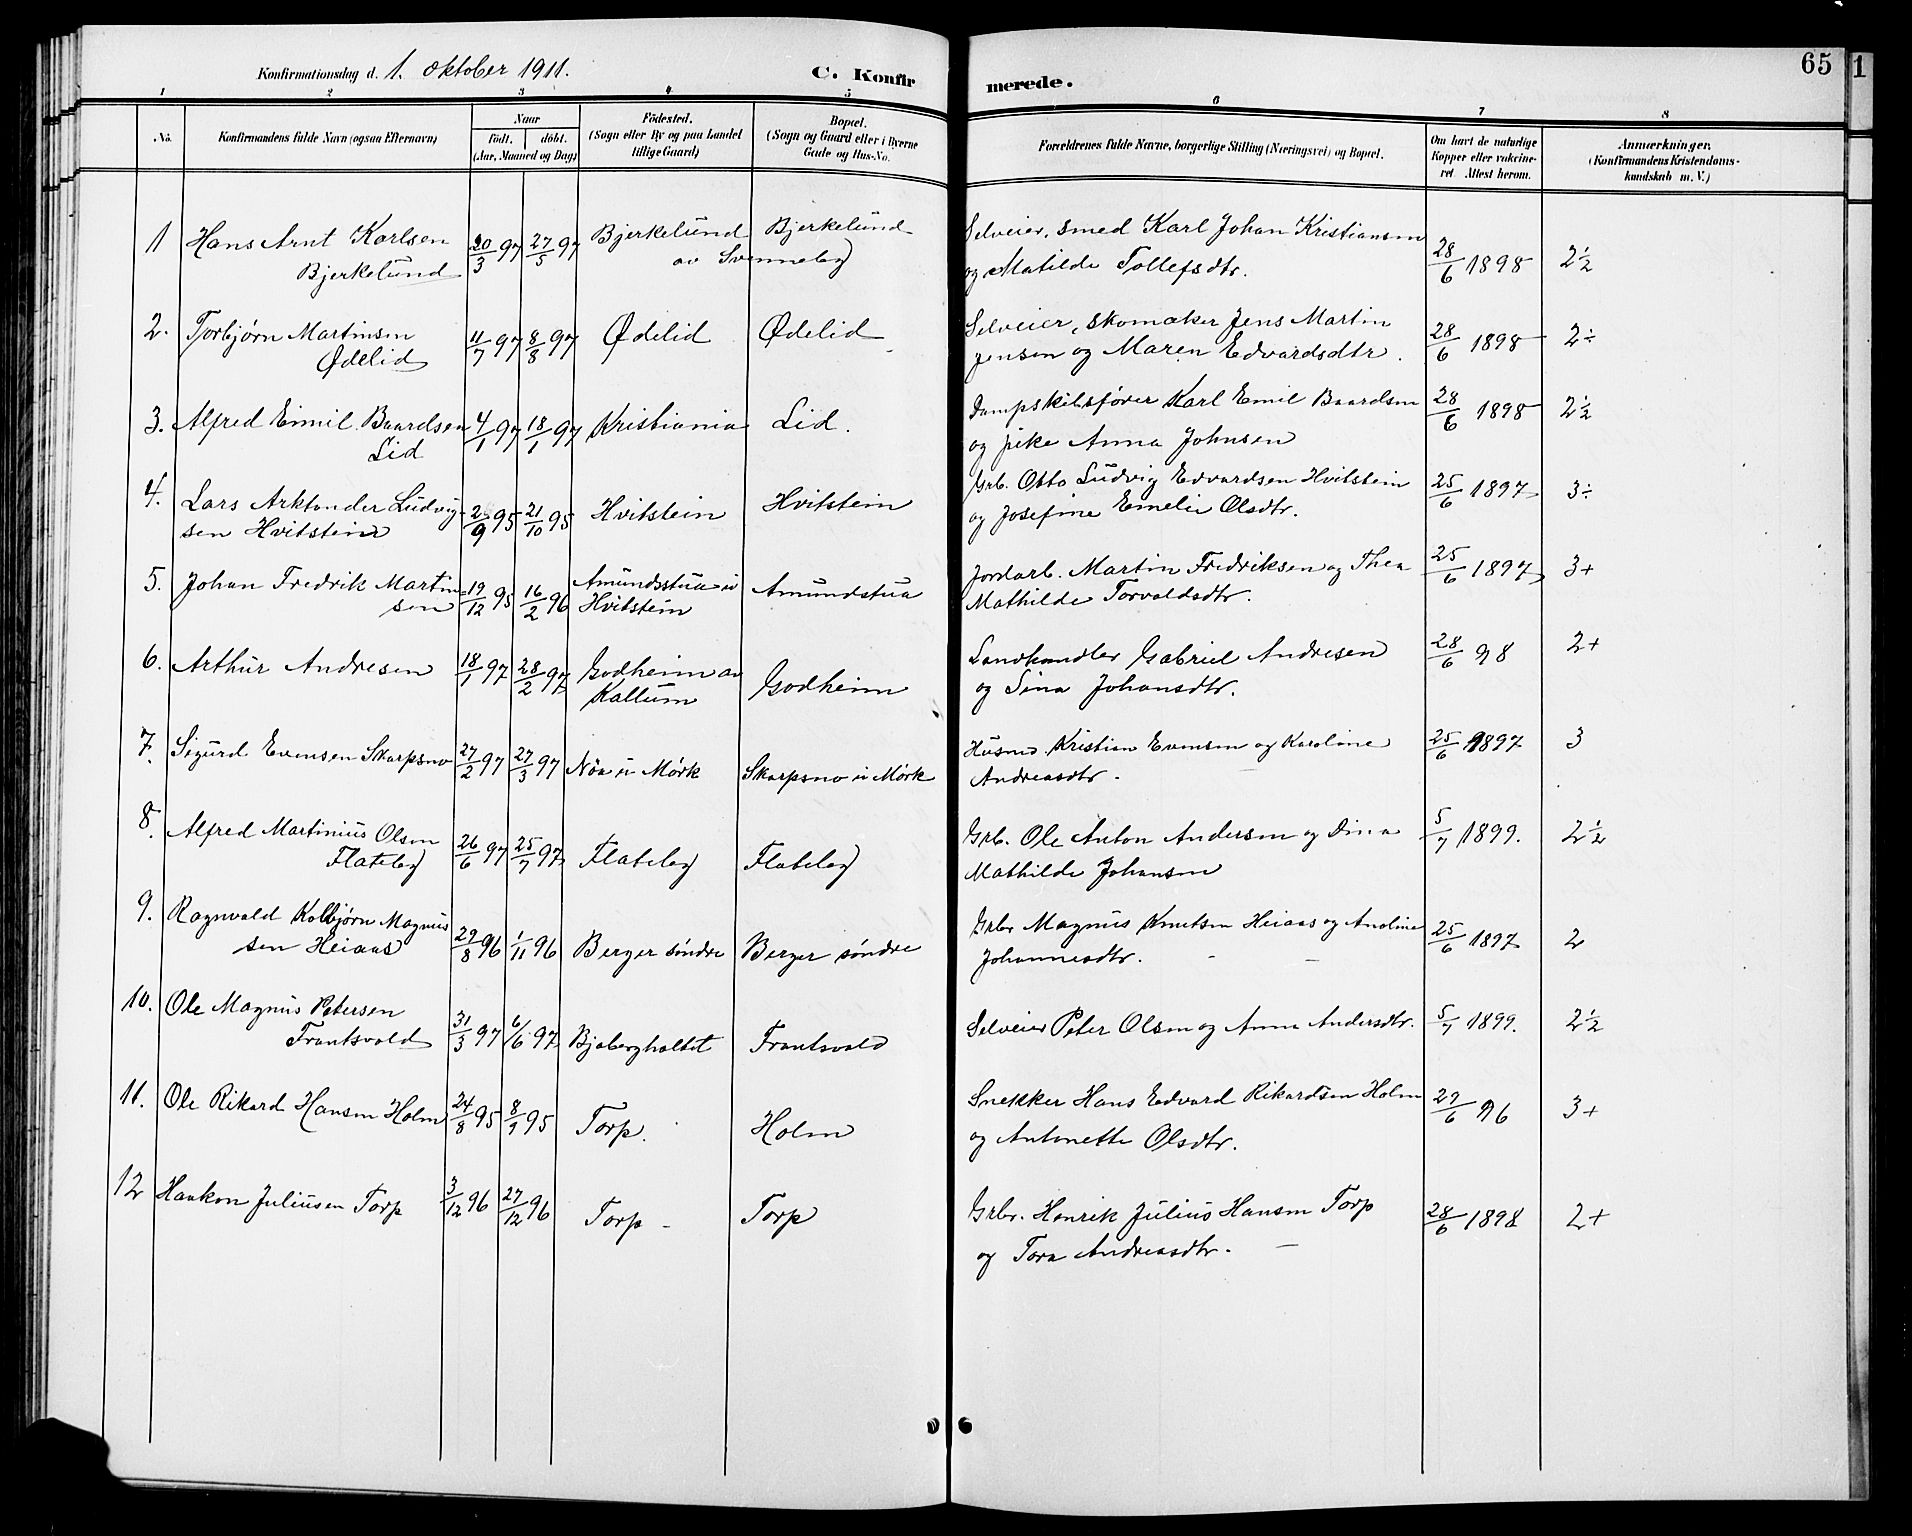 Konfirmationsdag d. 1. oktober 1911.
C. Konfir
merede.
65
1
1 2 3 4 5 6 7 8
No. Konfirmandens fulde Navn (ogsaa Efternavn) Naar födt. döbt. (Aar, Maaned og Dag) Födested. (Sogn eller By og paa Landet tillige Gaard) Bopæl. (Sogn og Gaard eller i Byerne Gade og Hus-No. Forældrenes fulde Navne, borgerlige Stilling (Næringsvei) og Bopæl. Om havt de naturlige Kopper eller vakcineret Attest herom. Anmærkninger. (Konfirmandens Kristendomskundskab m. V.)
1 Hans Arnt Karlsen 20/3 97 27/5 97 Bjerkelund Bjerkelund Selveier, smed Karl Johan Kristiansen 28/6 1898 2½
Bjerkelund av Svenneby og Matilde Tollefsdtr.
2. Torbjørn Martinsen 11/7 97 8/8 97 Ødelid Ødelid Selveier, skomaker Jens Martin 28/6 1898 2÷
Ødelid Jensen og Maren Edvardsdtr.
3. Alfred Emil Baardsen 4/1 97 18/1 97 Kristiania Lid. Dampskibsfører Karl Emil Baardsen 28/6 1898 2½
Lid og pike Anna Johnsen
4. Lars Arktander Ludvig- 2/9 95 21/10 95 Hvitstein Hvitstein Grb. Otto Ludvig Edvardsen Hvitstein 25/6 1897 3÷
sen Hvitstein og Josefine Emelie Olsdtr.
5. Johan Fredrik Martin 19/12 95 16/2 96 Amundsstua u Amundstua Jordarb. Martin Fredriksen og Thea 25/6 1897 3+
sen Hvitstein Mathilde Torvaldsdtr.
6. Arthur Andresen 18/1 97 28/2 97 Godheim av Godheim Landhandler Gabriel Andresen 28/6 98 2+
Kallum og Sina Johansdtr.
7. Sigurd Evensen Skarpsno 27/2 97 27/3 97 Nöa u Mørk Skarpsno u Mørk Husmd. Kristian Evensen og Karoline 25/6 1897 3
Andreasdtr.
8. Alfred Martinius Olsen 26/6 97 25/7 97 Flateby Flateby Grb. Ole Anton Andersen og Dina 5/7 1899. 2½
Flateby Mathilde Johansen
9. Ragnvald Kolbjørn Magnus 29/8 96 1/11 96 Berger söndre Berger söndre Grbr Magnus Knutsen Heiaas og Anoline 25/6 1897 2
sen Heiaas Johannesdtr.
10. Ole Magnus Petersen 31/3 97 6/6 97 Bjabergholtet Frantsvold Selveier Peter Olsen og Anna Andersdtr. 5/7 1899. 2½
Frantsvold
11. Ole Rikard Hansen Holm 24/8 95 8/9 95 Torp. Holm Snekker Hans Edvard Rikardsen Holm 29/6 96 3+
og Antonette Olsdtr.
12 Haakon Juliusen Torp 3/12 96 27/12 96 Torp - Torp Grbr. Henrik Julius Hansen Torp 28/6 1898 2+
og Tora Andreasdtr. -